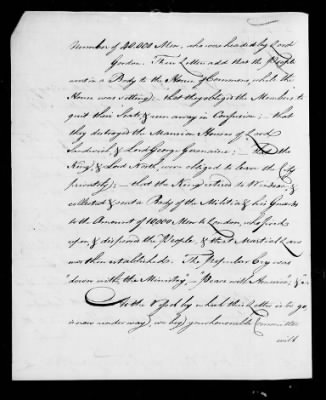 Number of 40,000 Men, who were headed by Lord
Gordon. Their Letters add that the People
went in a Body to the House of Commons, while the
House was sitting; that they obliged the Members to
quit their Seats & run away in Confusion; — that
they destroyed the Mansion Houses of Lord
Sandwich, & Lord George Germaine; — that the
King, & Lord North, were obliged to leave the City
privately; — that the King retired to Windsor, &
collected & sent a Body of the Militia & his Guards
to the Amount of 10,000 Men to London, who fired
upon, & dispersed the People, & that Martial Law
was then established. The Popular Cry was
"down with the Ministry", — "Peace with America",
As the Vessel by which this Letter is to go,
is now under way, we beg your honorable Committee
will